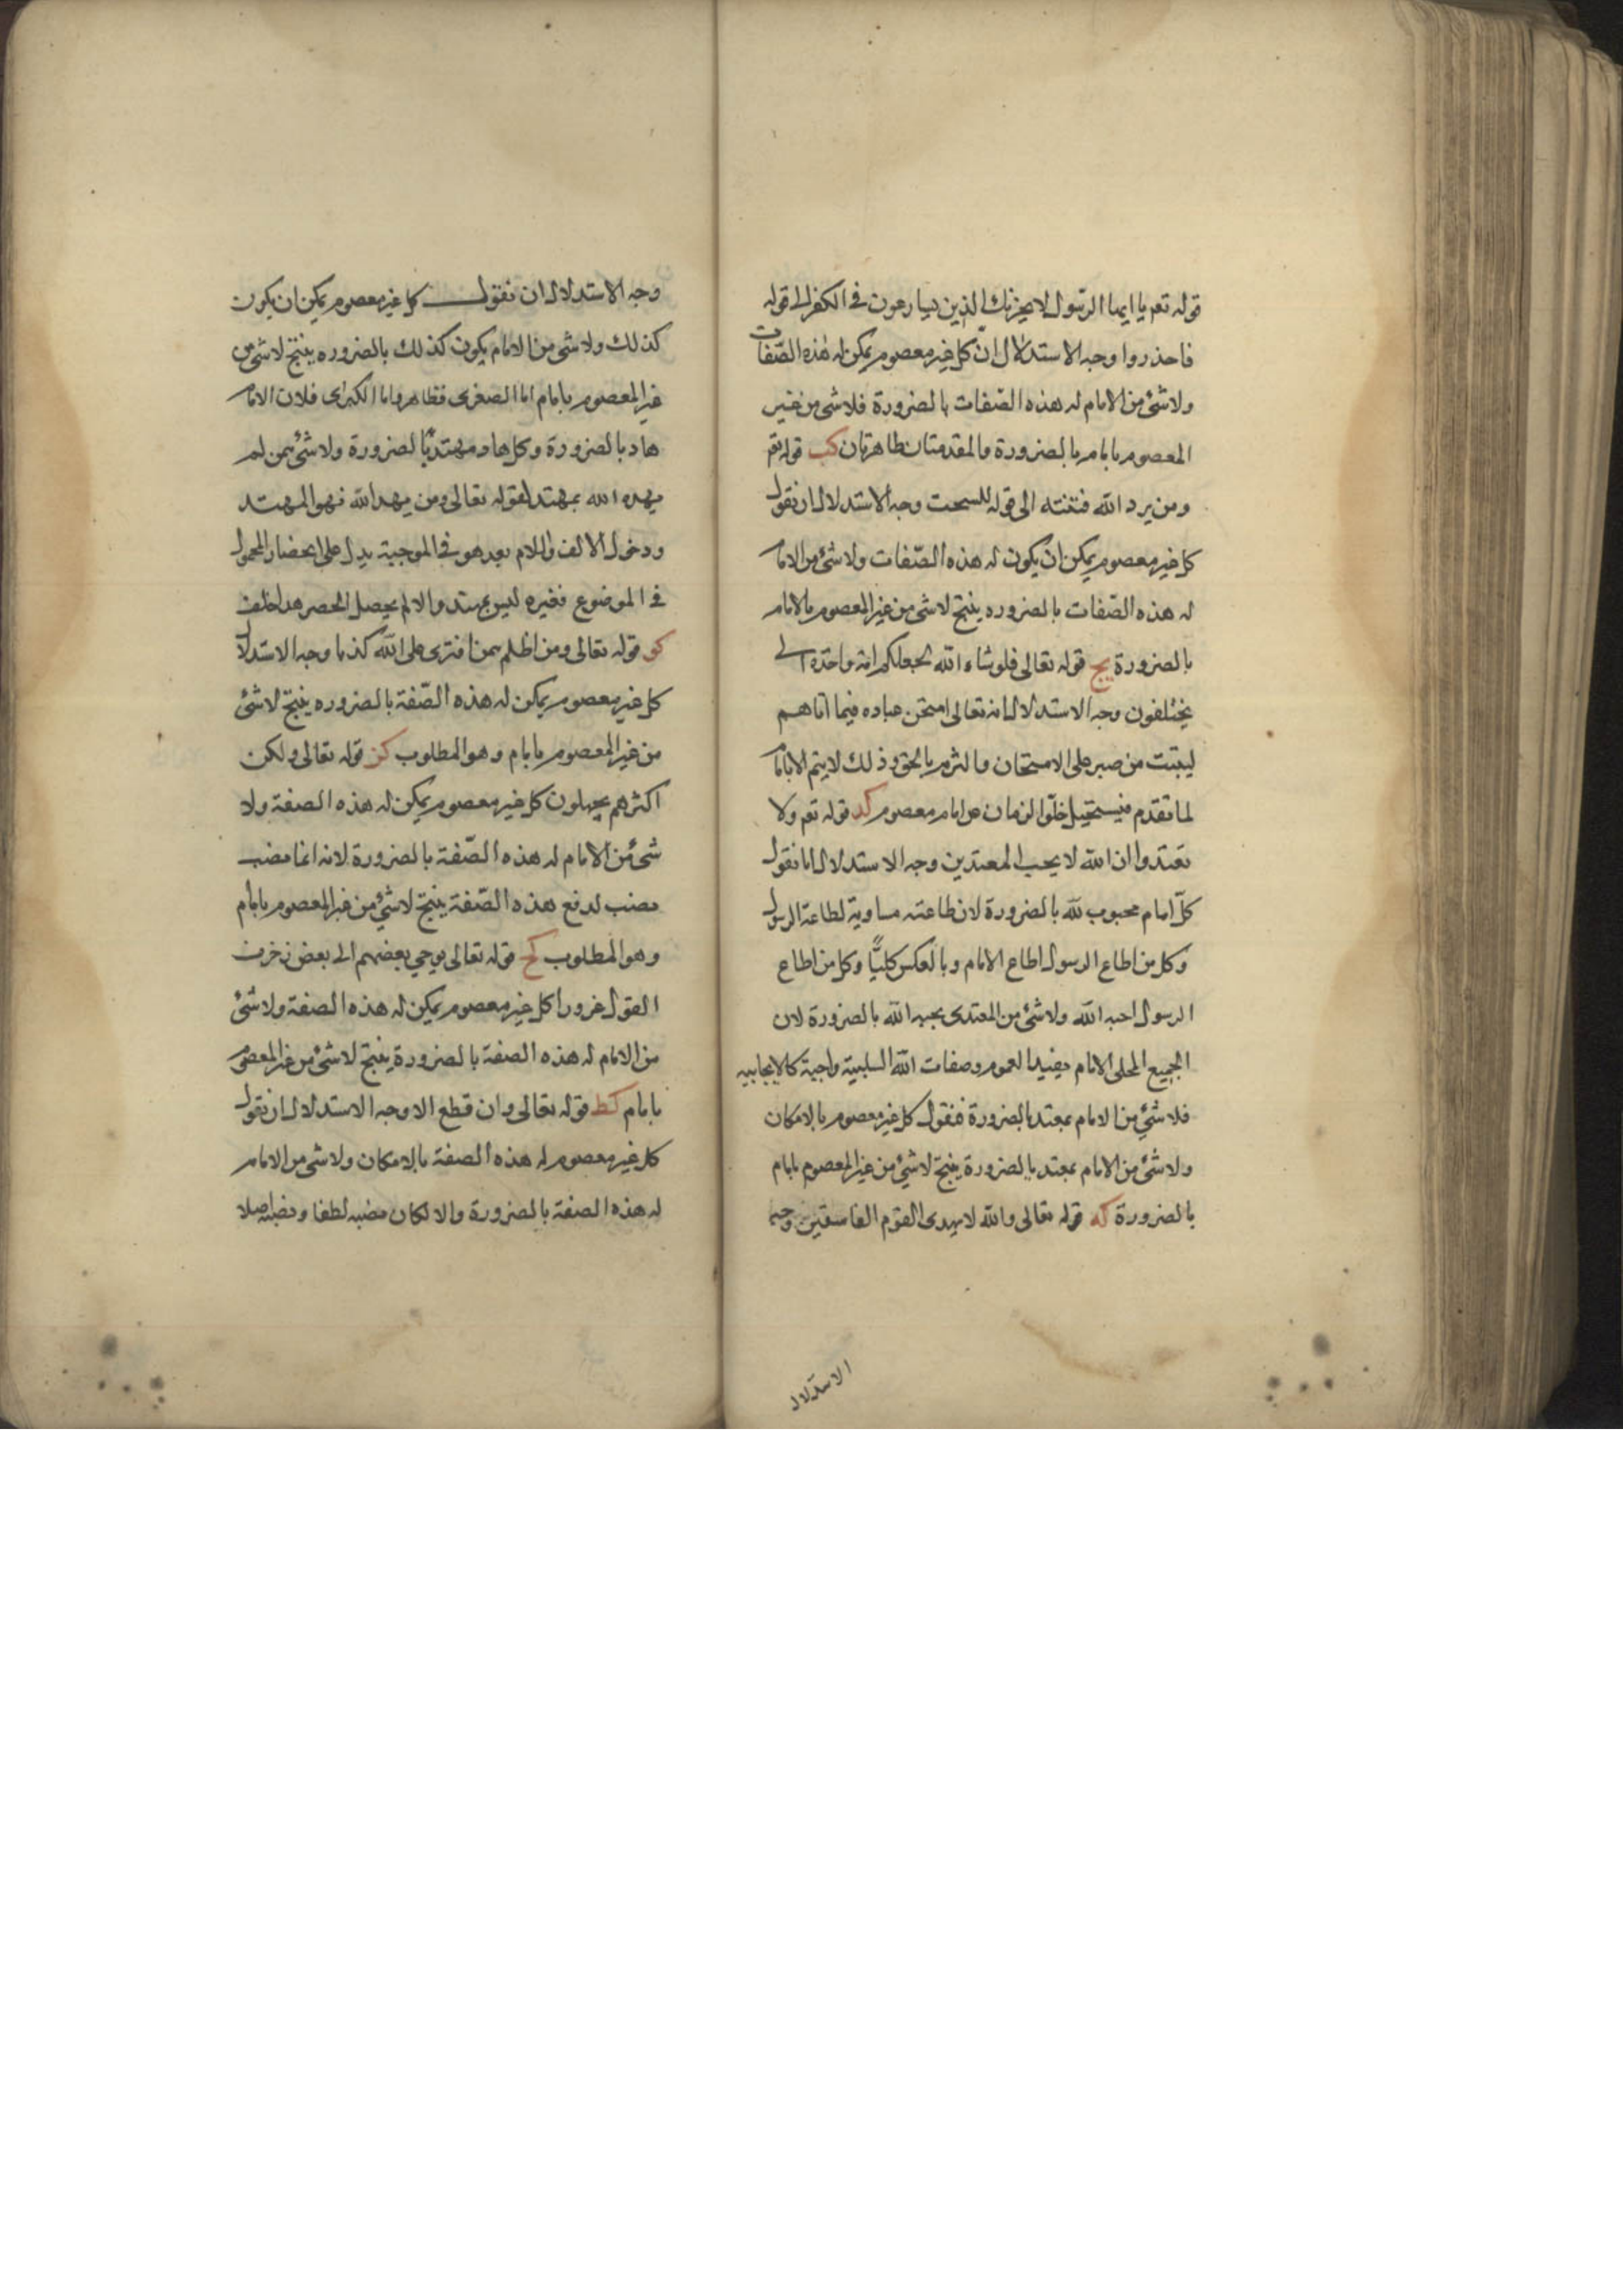 قوله تعم يا ايها الرسول لا يحزنك الذين يسارعون في الكفر الى قوله
فاحذروا وجه الاستدلال ان كل غير معصوم يمكن له هذه الصفات
ولا شئ من الامام له هذه الصفات بالضرورة فلا شئ من غير
المعصوم بامام بالضرورة والمقدمتان ظاهرتان كب قوله تعم
ومن يرد الله فتنته الى قوله للسحت وجه الاستدلال ان نقول
كل غير معصوم يمكن ان يكون له هذه الصفات ولا شئ من الامام
له هذه الصفات بالضروره ينتج لا شئ من غير المعصوم بالامام
بالضرورة يج قوله تعالى فلو شاء الله لجعلكم امة واحدة الى
يختلفون وجه الاستدلال انه تعالى امتحن عباده فيما اتاهم
ليثبت من صبر على الامتحان والتزم بالحق وذلك لا يتم الا بامام
لما تقدم فيستحيل خلو الزمان من امام معصوم كد قوله تعم ولا
تعتدوا ان الله لا يحب المعتدين وجه الاستدلال انا نقول
كل امام محبوب لله بالضرورة لان طاعته مساوية لطاعة الرسول
وكل من اطاع الرسول اطاع الامام وبالعكس كليّاً وكل من اطاع
الرسول احبه الله ولا شئ من المعتدى يحبه الله بالضرورة لان
الجميع المحلى الامام يفيد العموم وصفات الله السلبية واجبة كالايجابيه
فلا شئ من الامام بمعتد بالضرورة فنقول كل غير معصوم بالامكان
ولا شئ من الامام بمعتد بالضرورة ينتج لا شئ من غير المعصوم بامام
بالضرورة كه قوله تعالى والله لا يهدى القوم الفاسقين وجه
الاستدلال
وجه الاستدلال ان نقول كل غير معصوم يمكن ان يكون
كذلك ولا شئ من الامام يكون كذلك بالضروره ينتج لا شئ من
غير المعصوم بامام اما الصغرى فظاهر واما الكبرى فلان الامام
هاد بالضرورة وكل هاد مهتد بالضرورة ولا شئ ممن لم
يهده الله بمهتد لقوله تعالى ومن يهد الله فهو المهتد
ودخول الالف واللام بعد هو في الموجبة يدل على انحصار المحمول
في الموضوع فغيره ليس بمهتد والا لم يحصل الحصر هذا خلف
كو قوله تعالى ومن اظلم ممن افترى على الله كذبا وجه الاستدلال
كل غير معصوم يمكن له هذه الصّفة بالضروره ينتج لا شئ
من غير المعصوم بامام وهو المطلوب كز قوله تعالى ولكن
اكثرهم يجهلون كل غير معصوم يمكن له هذه الصفة ولا
شئ من الامام له هذه الصّفة بالضرورة لانه انما نصب
نصب لدفع هذه الصّفة ينتج لا شئ من غير المعصوم بامام
وهو المطلوب كح قوله تعالى يوحي بعضهم الى بعض زخرف
القول غرورا كل غير معصوم يمكن له هذه الصفة ولا شئ
من الامام له هذه الصفة بالضرورة ينتج لا شئ من غير المعصوم
بامام كط قوله تعالى وان تطع الا وجه الاستدلال ان نقول
كل غير معصوم له هذه الصفة بالامكان ولا شئ من الامام
له هذه الصفة بالضرورة والا لكان نصبه لطفا ونصبه